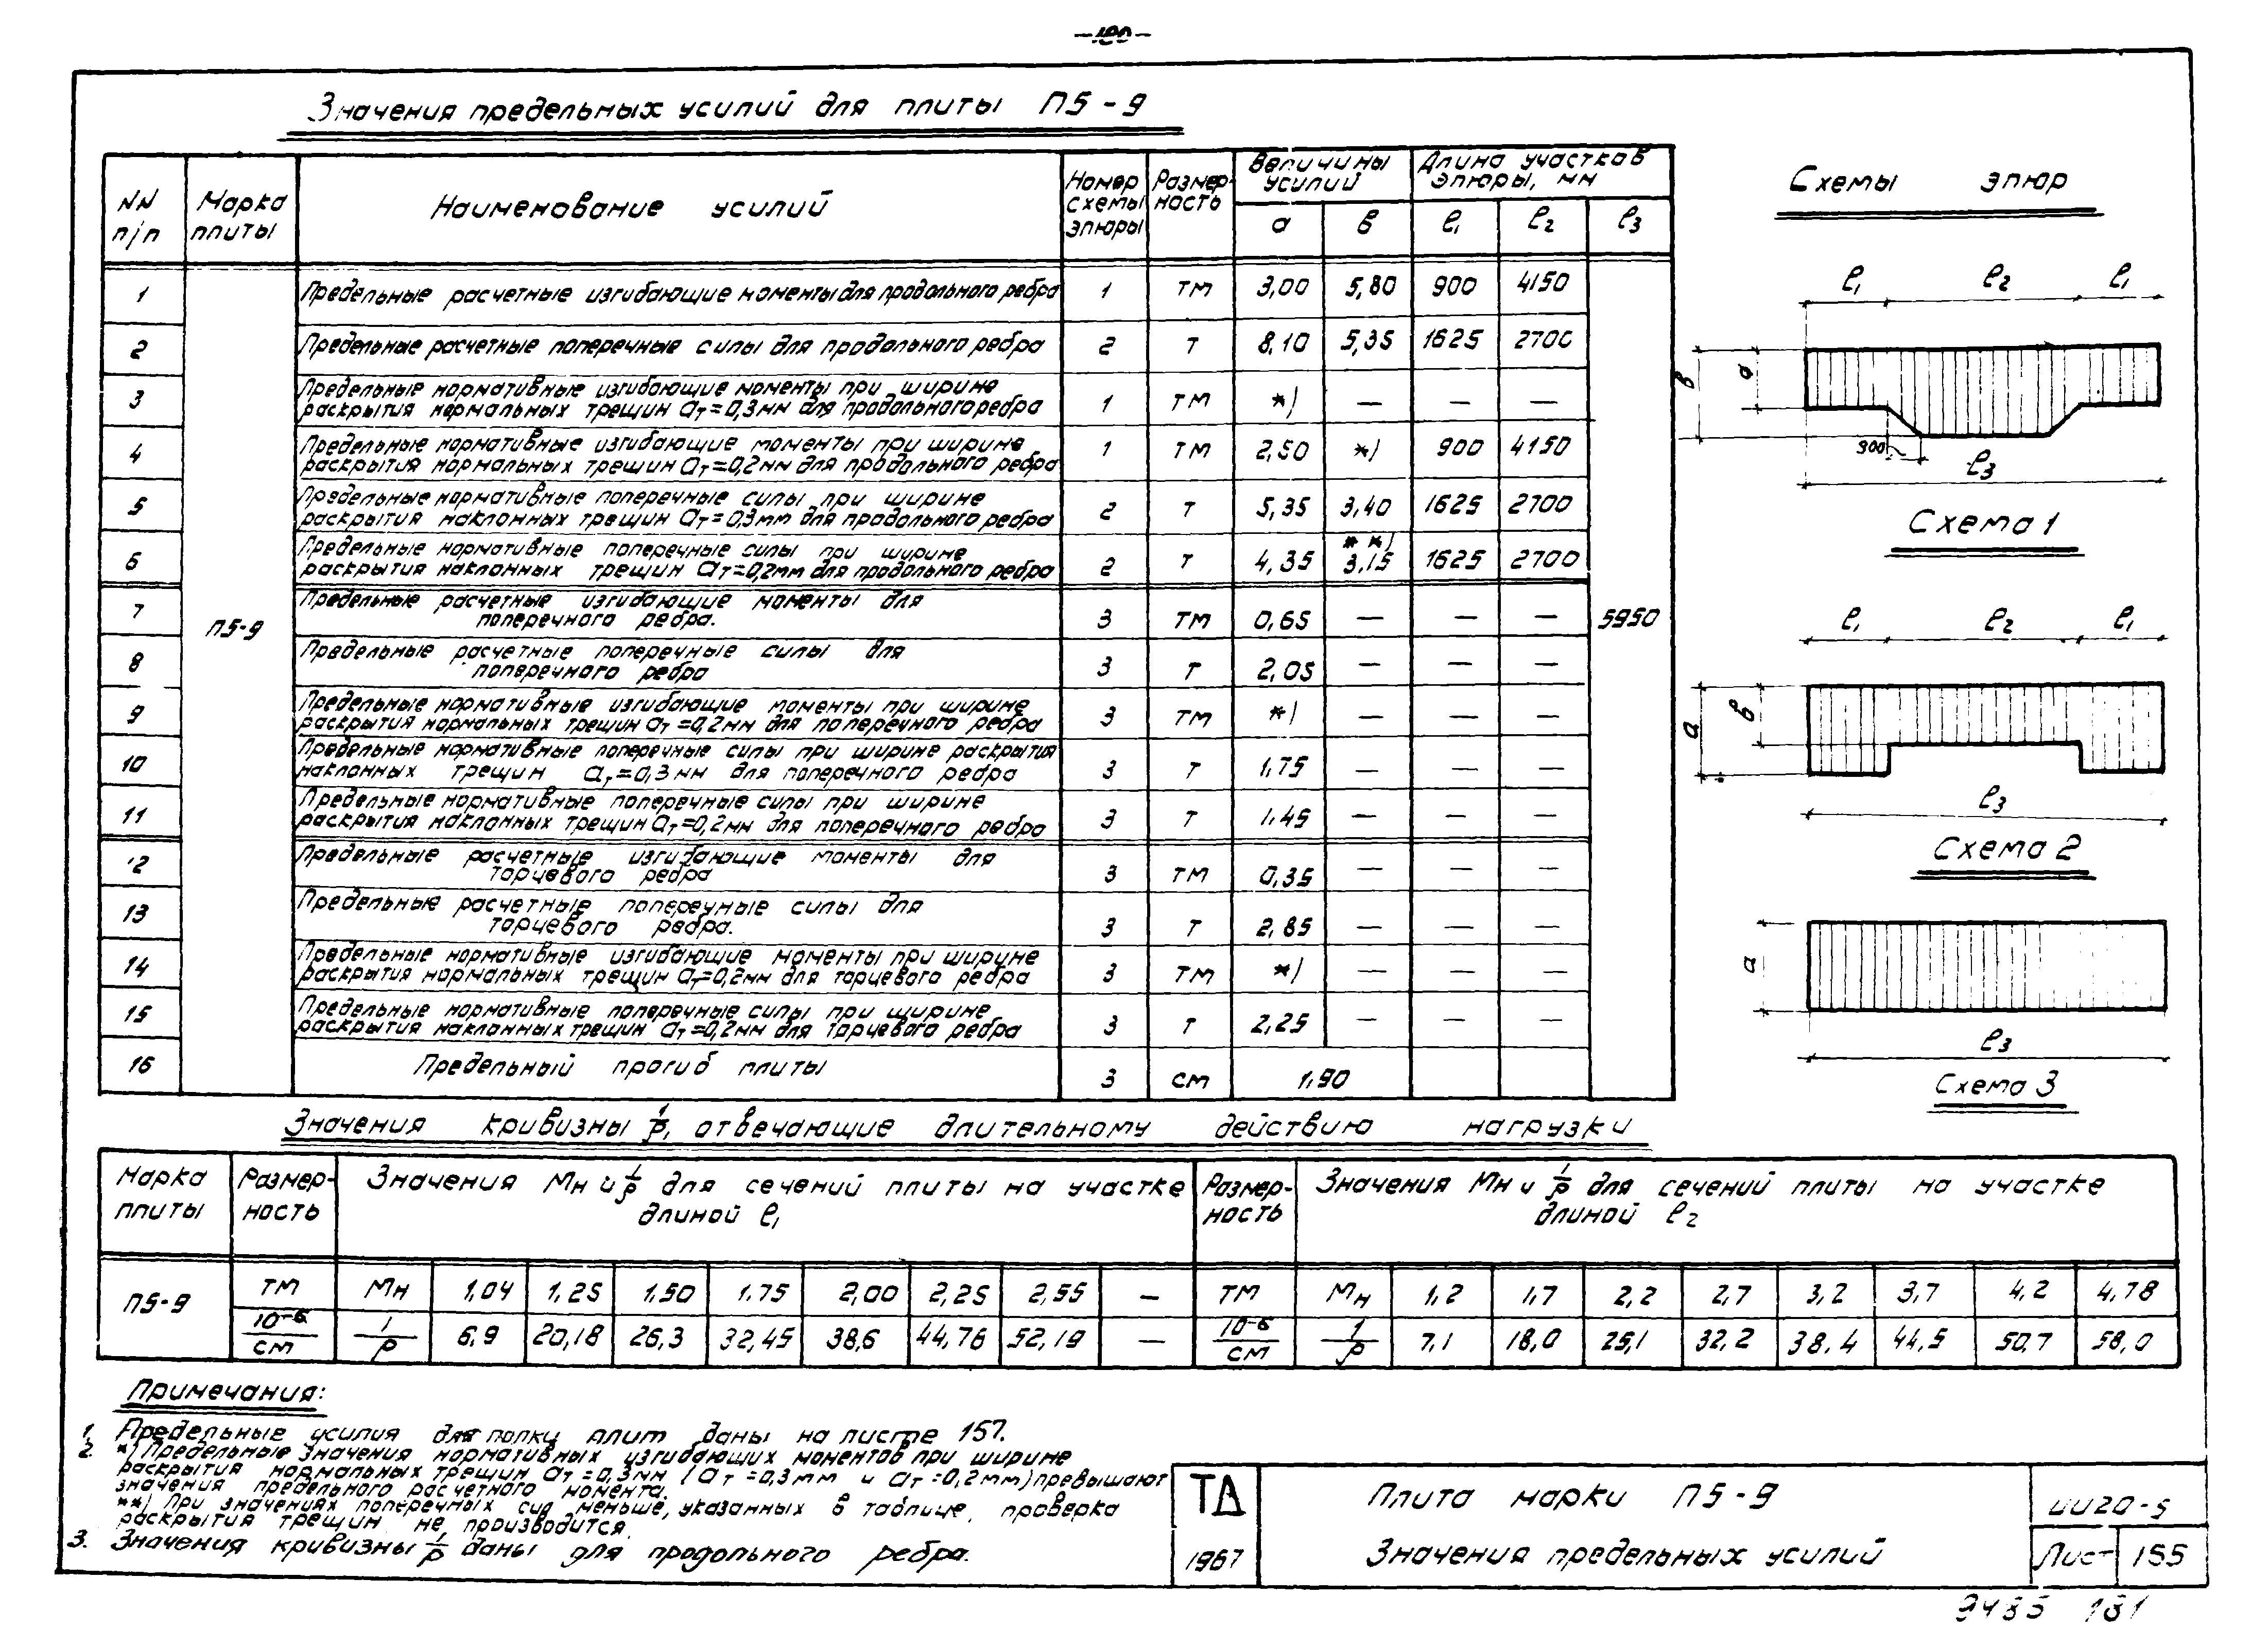 -180-
Значения предельных усилий для плиты П5-9
NN п/п
Марка плиты
Наименование усилий
Номер схемы эпюры
Размер-ность
Величины усилий
Длина участков эпюры, мм
а в ℓ1 ℓ2 ℓ3
1 Предельные расчетные изгибающие моменты для продольного ребра 1 тм 3,00 5,80 900 4150
2 Предельные расчетные поперечные силы для продольного ребра 2 т 8,10 5,35 1625 2700
3 Предельные нормативные изгибающие моменты при ширине
раскрытия нормальных трещин aт=0,3мм для продольного ребра 1 тм *) — — —
4 Предельные нормативные изгибающие моменты при ширине
раскрытия нормальных трещин aт=0,2мм для продольного ребра 1 тм 2,50 *) 900 4150
5 Предельные нормативные поперечные силы при ширине
раскрытия наклонных трещин aт=0,3мм для продольного ребра 2 т 5,35 3,40 1625 2700
6 Предельные нормативные поперечные силы при ширине
раскрытия наклонных трещин aт=0,2мм для продольного ребра 2 т 4,35 **) 3,15 1625 2700
П5-9
5950
7 Предельные расчетные изгибающие моменты для
поперечного ребра. 3 тм 0,65 — — —
8 Предельные расчетные поперечные силы для
поперечного ребра 3 т 2,05 — — —
9 Предельные нормативные изгибающие моменты при ширине
раскрытия нормальных трещин aт=0,2мм для поперечного ребра 3 тм *) — — —
10 Предельные нормативные поперечные силы при ширине раскрытия
наклонных трещин aт=0,3мм для поперечного ребра 3 т 1,75 — — —
11 Предельные нормативные поперечные силы при ширине
раскрытия наклонных трещин aт=0,2мм для поперечного ребра 3 т 1,45 — — —
12 Предельные расчетные изгибающие моменты для
торцевого ребра 3 тм 0,35 — — —
13 Предельные расчетные поперечные силы для
торцевого ребра. 3 т 2,85 — — —
14 Предельные нормативные изгибающие моменты при ширине
раскрытия нормальных трещин aт=0,2мм для торцевого ребра 3 тм *) — — —
15 Предельные нормативные поперечные силы при ширине
раскрытия наклонных трещин aт=0,2мм для торцевого ребра 3 т 2,25 — — —
16 Предельный прогиб плиты 3 см 1,90
Схемы эпюр
ℓ1 ℓ2 ℓ1
в а
300
ℓ3
Схема 1
ℓ1 ℓ2 ℓ1
а в
ℓ3
Схема 2
а
ℓ3
Схема 3
Значения кривизны 1/ρ, отвечающие длительному действию нагрузки
Марка плиты
Размер-ность
Значения Мн и 1/ρ для сечений плиты на участке
длиной ℓ1
Размер-ность
Значения Мн и 1/ρ для сечений плиты на участке
длиной ℓ2
П5-9
тм Мн 1,04 1,25 1,50 1,75 2,00 2,25 2,55 — тм Мн 1,2 1,7 2,2 2,7 3,2 3,7 4,2 4,78
10-6/см 1/ρ 6,9 20,18 26,3 32,45 38,6 44,76 52,19 — 10-6/см 1/ρ 7,1 18,0 25,1 32,2 38,4 44,5 50,7 58,0
Примечания:
1. Предельные усилия для полки плит даны на листе 157.
2. *) Предельные значения нормативных изгибающих моментов при ширине
раскрытия нормальных трещин aт=0,3мм (aт=0,3мм и aт=0,2мм) превышают
значения предельного расчетного момента.
**) При значениях поперечных сил меньше, указанных в таблице, проверка
раскрытия трещин не производится.
3. Значения кривизны 1/ρ даны для продольного ребра.
ТД
1967
Плита марки П5-9
Значения предельных усилий
ИИ20-5
Лист 155
9485 181